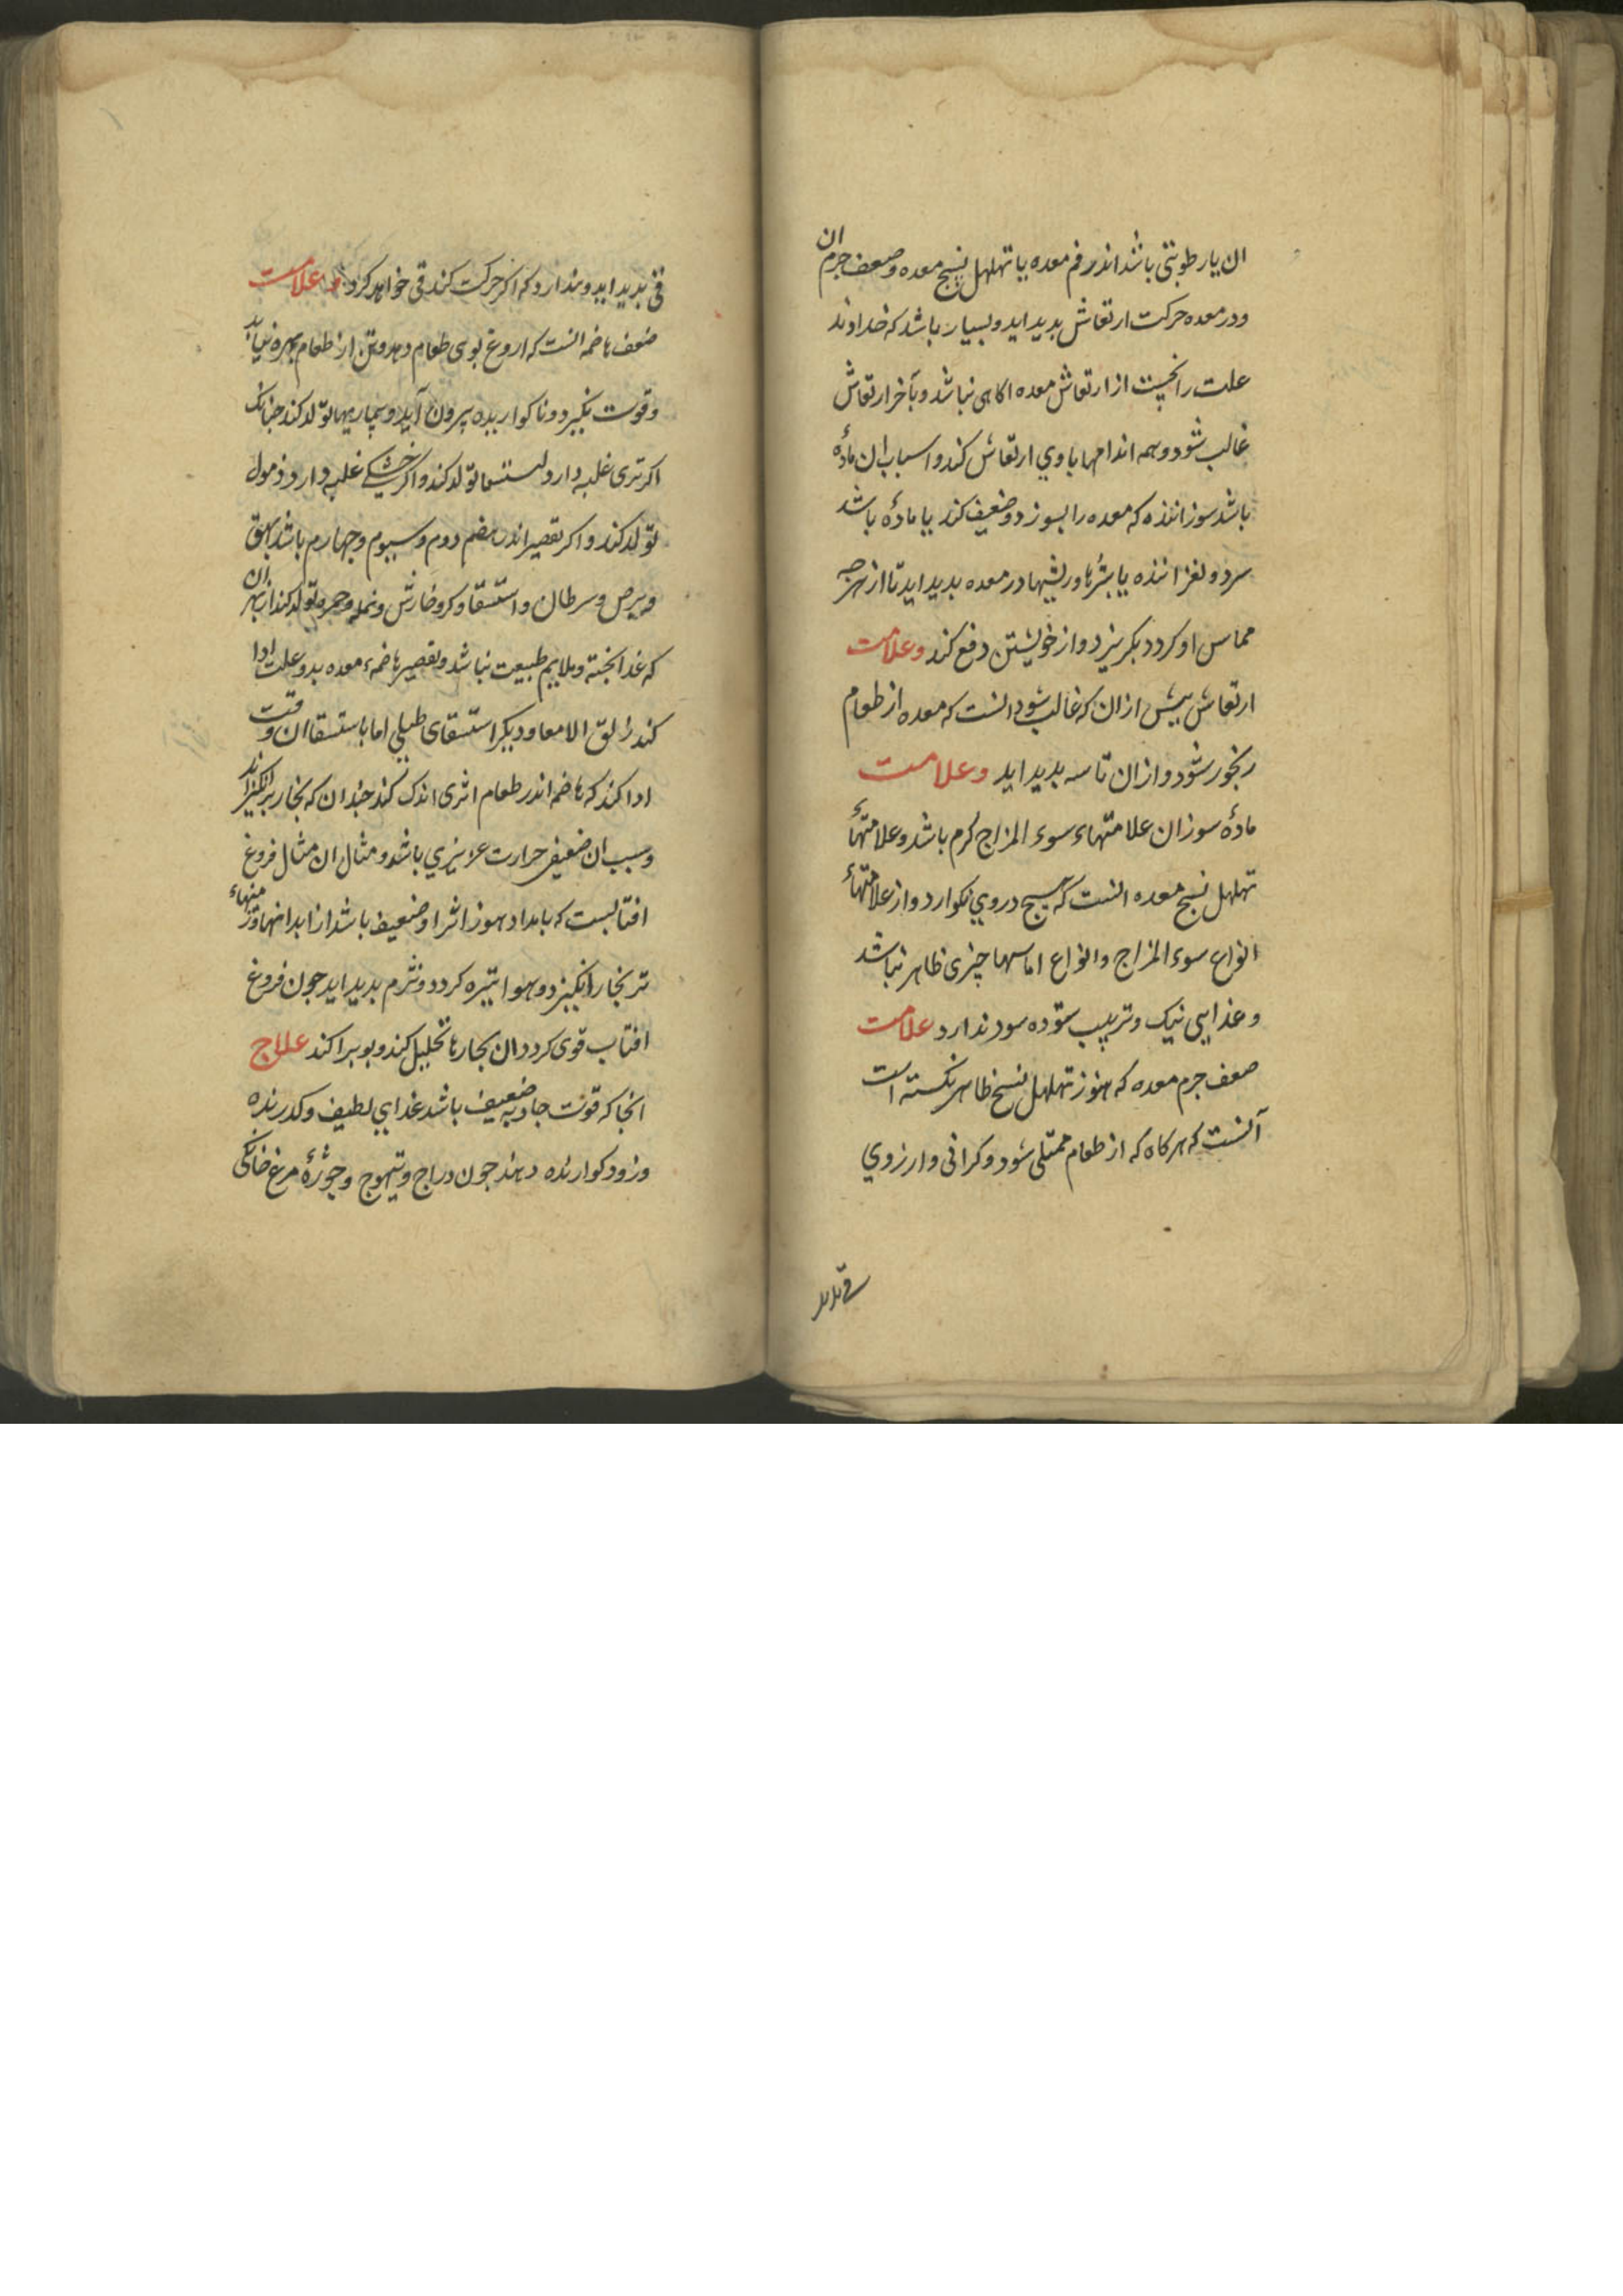 ان یا رطوبتی باشد اندر فم معده یا تهلهل نسج معده و ضعف جرم ان
و در معده حرکت ارتعاش بدید اید و بسیار باشد که خداوند
علت را نخست از ارتعاش معده اکاهی نباشد و بآخر ارتعاش
غالب شود و همه اندامها با وي ارتعاش کند و اسباب ان مادهٔ
باشد سوزاننده که معده را بسوزد و ضعیف کند یا مادهٔ باشد
سرد و لغزاننده یا بثرها و ریشها در معده بدید اید تا از هرجه
مماس او کردد بکریزد و از خویشتن دفع کند وعلامت
ارتعاش بیش از ان که غالب شود انست که معده از طعام
رنجور شود و از ان تاسه بدید اید وعلامت
مادهٔ سوزان علامتهاء سوء المزاج کرم باشد و علامتهاء
تهلهل نسج معده انست که هیج در وي نکوارد و از علامتهاء
انواع سوء المزاج و انواع اماسها چیزی ظاهر نباشد
و غذایی نیک و ترتیب ستوده سود ندارد علامت
ضعف جرم معده که هنوز تهلهل نسج ظاهر نکشته است
آنست که هرکاه که از طعام ممتلی شود و کرانی و ارزوي
قی بدید
قی بدید اید و بندارد که اکر حرکت کند قی خواهد کرد و علامت
ضعف هاضمه انست که اروغ بوی طعام دهد و تن از طعام بهره نیابد
و قوت نکیرد و ناکواریده بیرون آید و بیماریها تولد کند جنانک
اکر تری غلبه دارد استسقا تولد کند و اکر خشکی غلبه دارد ذبول
تولد کند و اکر تقصیر اندر هضم دوم و سیوم و جهارم باشد بهق
و برص و سرطان و استسقا و کر و خارش و نمله و جمره تولد کند از بهر ان
که غدا بخته و ملایم طبیعت نباشد و تقصیر هاضمهء معده بدو علت ادا
کند زلق الامعا و دیکر استسقای طبلی اما باستسقا ان وقت
ادا کند که هاضمه اندر طعام اثری اندک کند جندان که بخار برانکیزاند
و سبب ان ضعیفی حرارت غریزي باشد و مثال ان مثال فروغ
افتابست که بامداد هنوز اثر او ضعیف باشد از ابدانها و زمینهاء
تر بخار انکیزد و هوا تیره کردد و نژم بدید اید جون فروغ
افتاب قوی کردد ان بخارها تحلیل کند و بوبراکند علاج
انجا که قوت جاذبه ضعیف باشد غذایي لطیف و کدرنده
و زود کوارنده دهند جون دراج و تیهوج و جوزهٔ مرغ خانکی